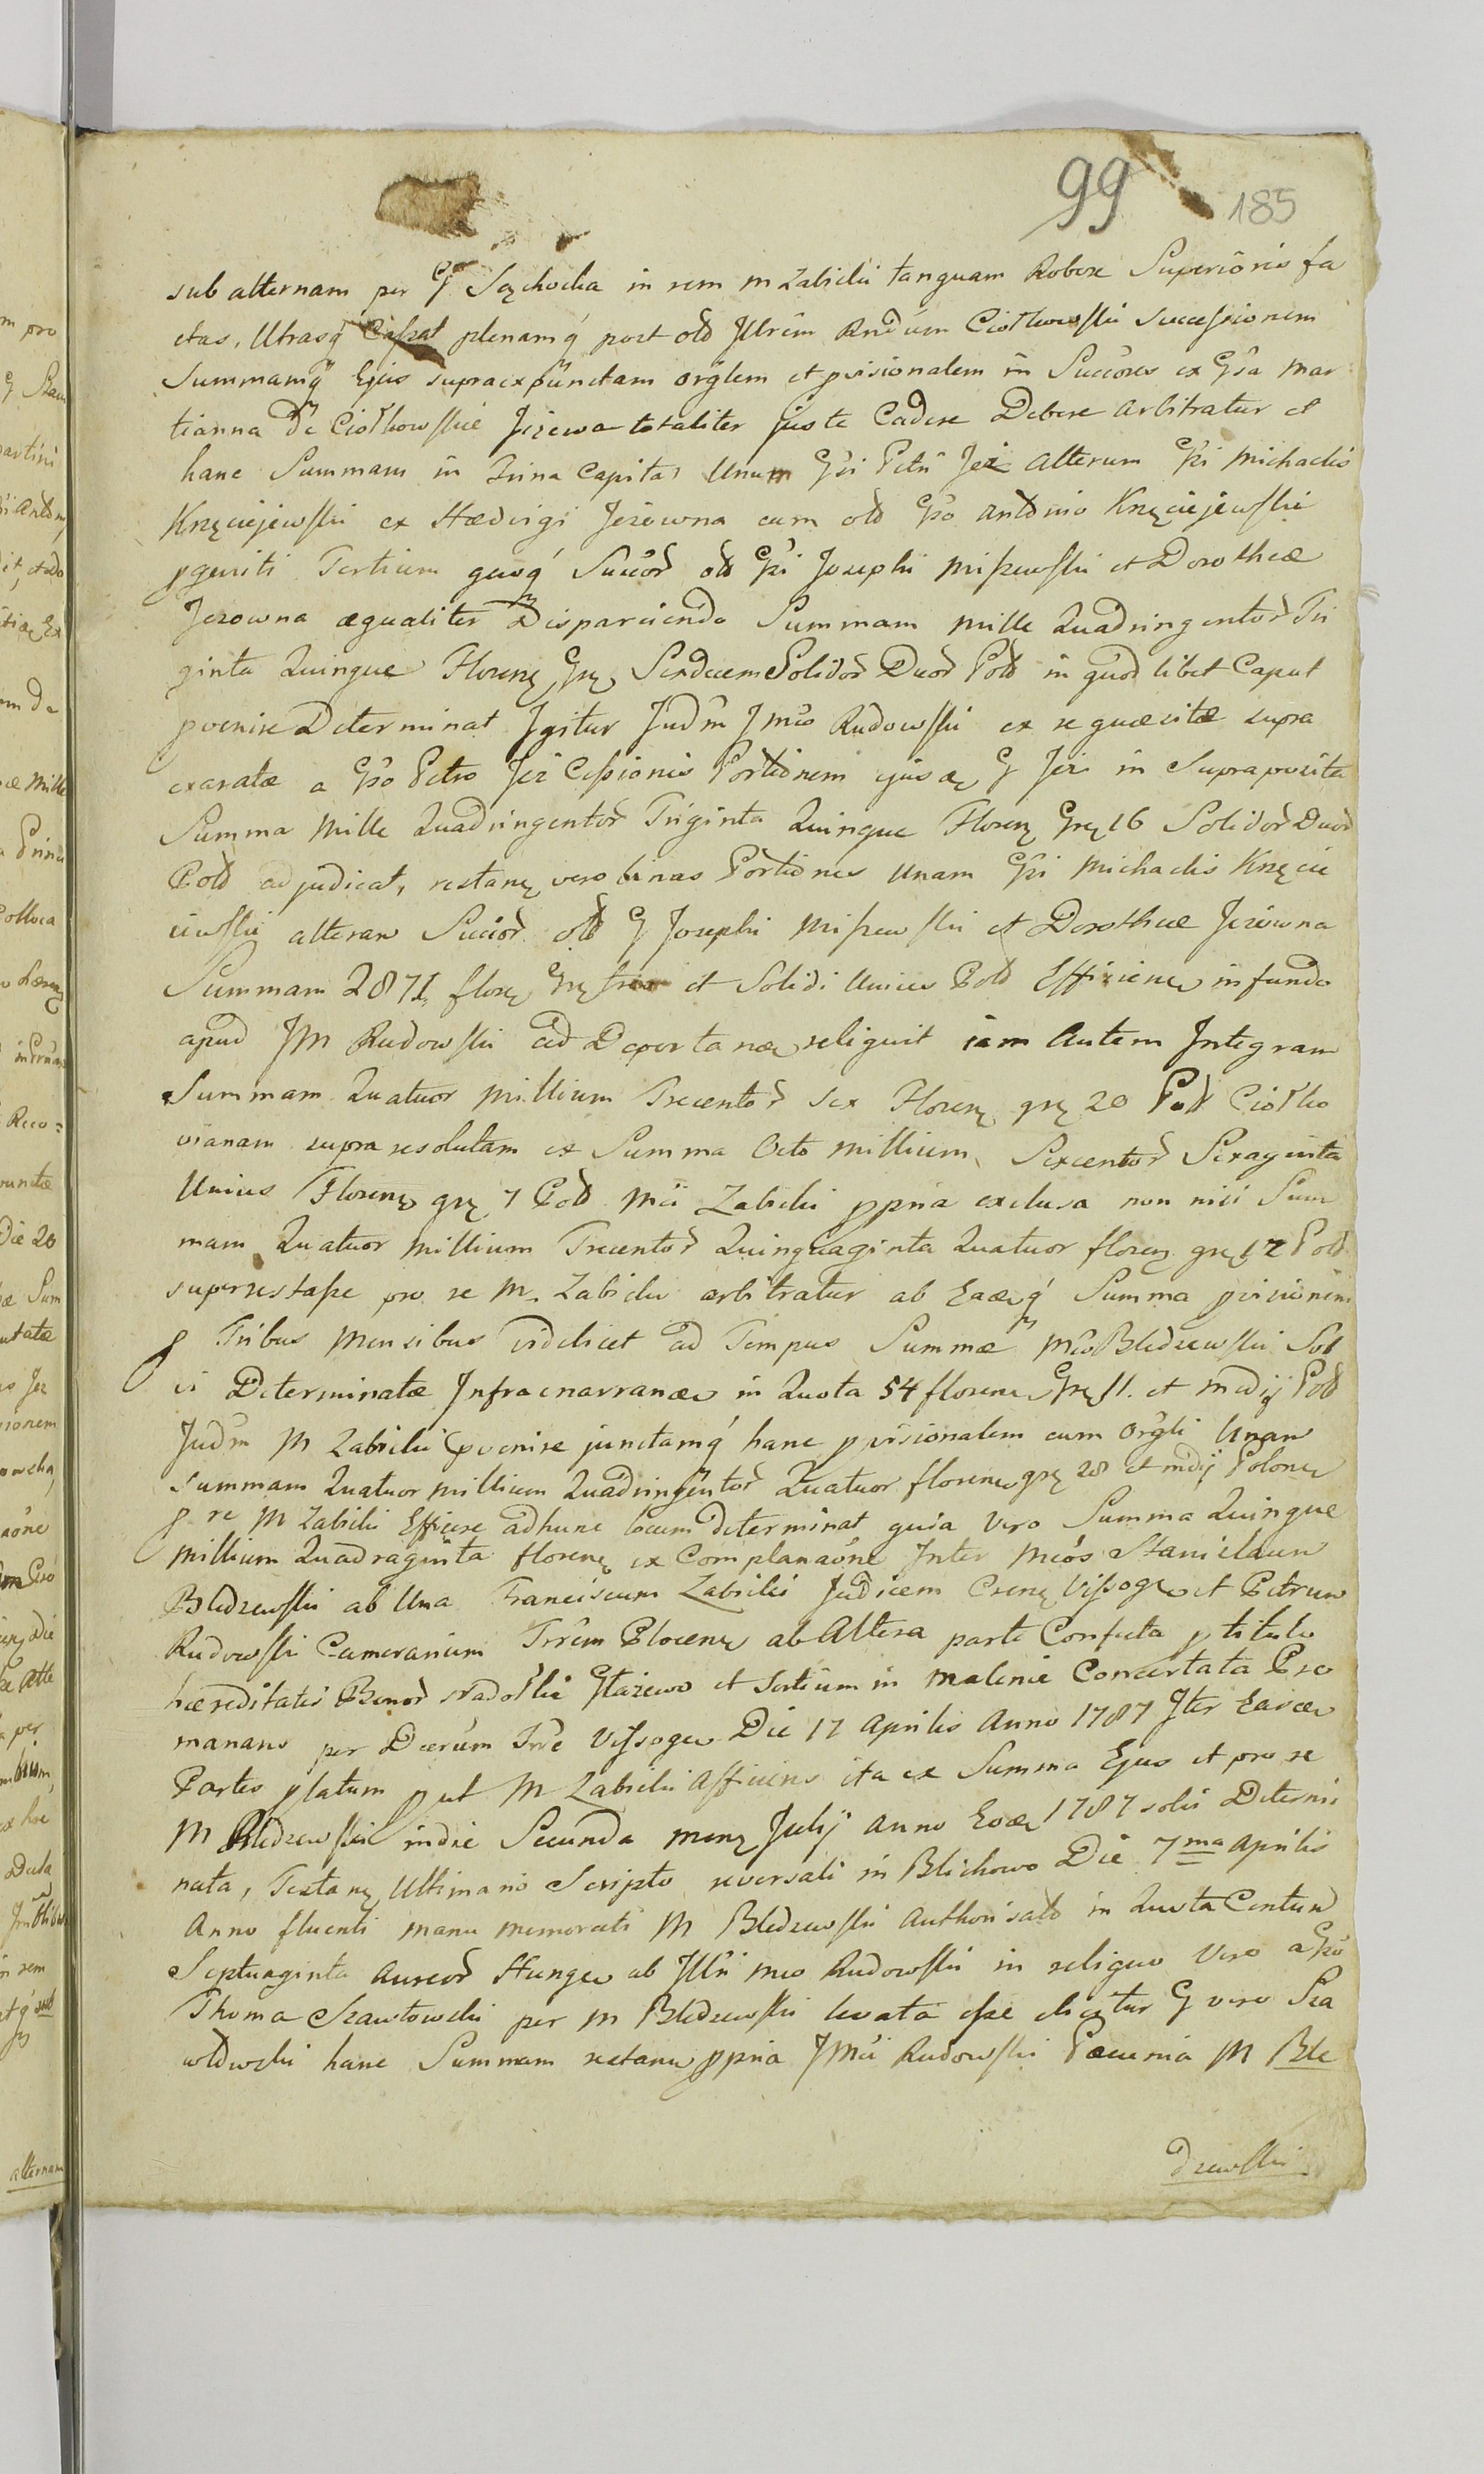 99 185
sub alternam per G Sęchocka in rem M Zabicki tanquam Robore Superioris fa
ctas, Utrasq́ Cassat plenamq́ post olð Jllrēm Rnðum Ciołkowski successionem
Summamq́ Ejus supraexpunctam orglem et pvisionalem in Succōres ex Gśa Mar
tianna De Ciołkowskie Jeżewa totaliter juste Cadere Debere arbitratur et
hanc Summam in Trina Capita, Unum Gśi Petri Jeż Alterum Gśi Michaelis
Knęciejewski ex Hædvigi Jeżowna cum olð Gśo Antonio Knęciejewski
pgeniti Tertium quoq́ Succoŕ olð Gśi Josephi Miszewski et Dorotheæ
Jezowna æqualiter Disparciendo Summam Mille Quadringentoŕ Tri
ginta Quinque Florenę Grę Sexdecem Solidoŕ Duoŕ Polð in quodlibet Caput
pvenire Determinat Igitur Judm Jmco Rudowski ex re quæsitæ supra
exaratæ a Gśo Petro Jeż Cessionis Portionem ejusdę G Jeż in Supraposita
Summa Mille Quadringentoŕ Triginta Quinque Florenę Grę 16 Solidoŕ Duoŕ
Polð adjudicat, restanę vero binas Portiones Unam Gśi Michaelis Knęcie
iewski alteram Succoŕ olð G Josephi Miszewski et Dorotheæ Jeżowna
Summam 2871, florę Grę et Solidi Unius Polð Efficienę in fundo
apud JM Rudowski ad Deportanðę reliquit iam Autem Integram
Summam Quatuor Millium Trecentoŕ Sex Florenę grę 20 Polð Ciołko
vianam supra resolutam ex Summa Octo Millium, Sexcentoŕ Sexaginta
Unius Florenę grę 7 Polð Mci Zabicki ppria exclusa non nisi Sum
mam Quatuor Millium Trecentoŕ Quinquaginta Quatuor florenę grę 17 Polð
superrestasse pro re M. Zabicki arbitratur ab Eadęq́ Summa pvisionem
p Tribus Mensibus videlicet ad Tempus Summæ Mco Bledzewski Sol
vi Determinatæ Infraenarranðę in Quota 54 florenę Grę 11. et medij Polð
Judm M Zabicki pvenire junctamq́ hanc pvisionalem cum Orgli Unam
summam Quatuor Millium Quadringentoŕ Quatuor florenę grę 28 et medij Polonę
p re M Zabicki Efficere adhunc locum determinat quia Vero Summa Quinque
Millium Quadraginta florenę ex Complanaõne Inter Mcos Stanislaum
Bledzewski ab Una Franciscum Zabicki Judicem Crenę Vissogę et Petrum
Rudowski Camerarium Trrem Plocenę ab Altera parte Confecta p titulo
hæreditatis Bonoŕ Nadołki Głazewo et Sortium in Malenie Concertata Pro
manans per Decrum Trre Vissogę Die 17 Aprilis Anno 1787 Jter Easdę
Partes platum put M Zabicki Afficiens ita ex Summa Ejus et pro re
M Bledzewski indie Secunda Menę Julij Anno Eodę 1787 solvi Determi
nata, Testanę Ultimario Scripto reversali in Blichowo Die 7ma Aprilis
Anno fluenti manu memorati M Bledzewski Authorisato in Quota Centum
Septuaginta Aureoŕ Hungę ab Jllri Mco Rudowski in reliquo Vero a Gśo
Thoma Szawłowski per M Bledzewski levata esse dicitur G vero Sza
włowski hanc Summam restanę ppria JMci Rudowski Pæcunia M Ble
dzewski